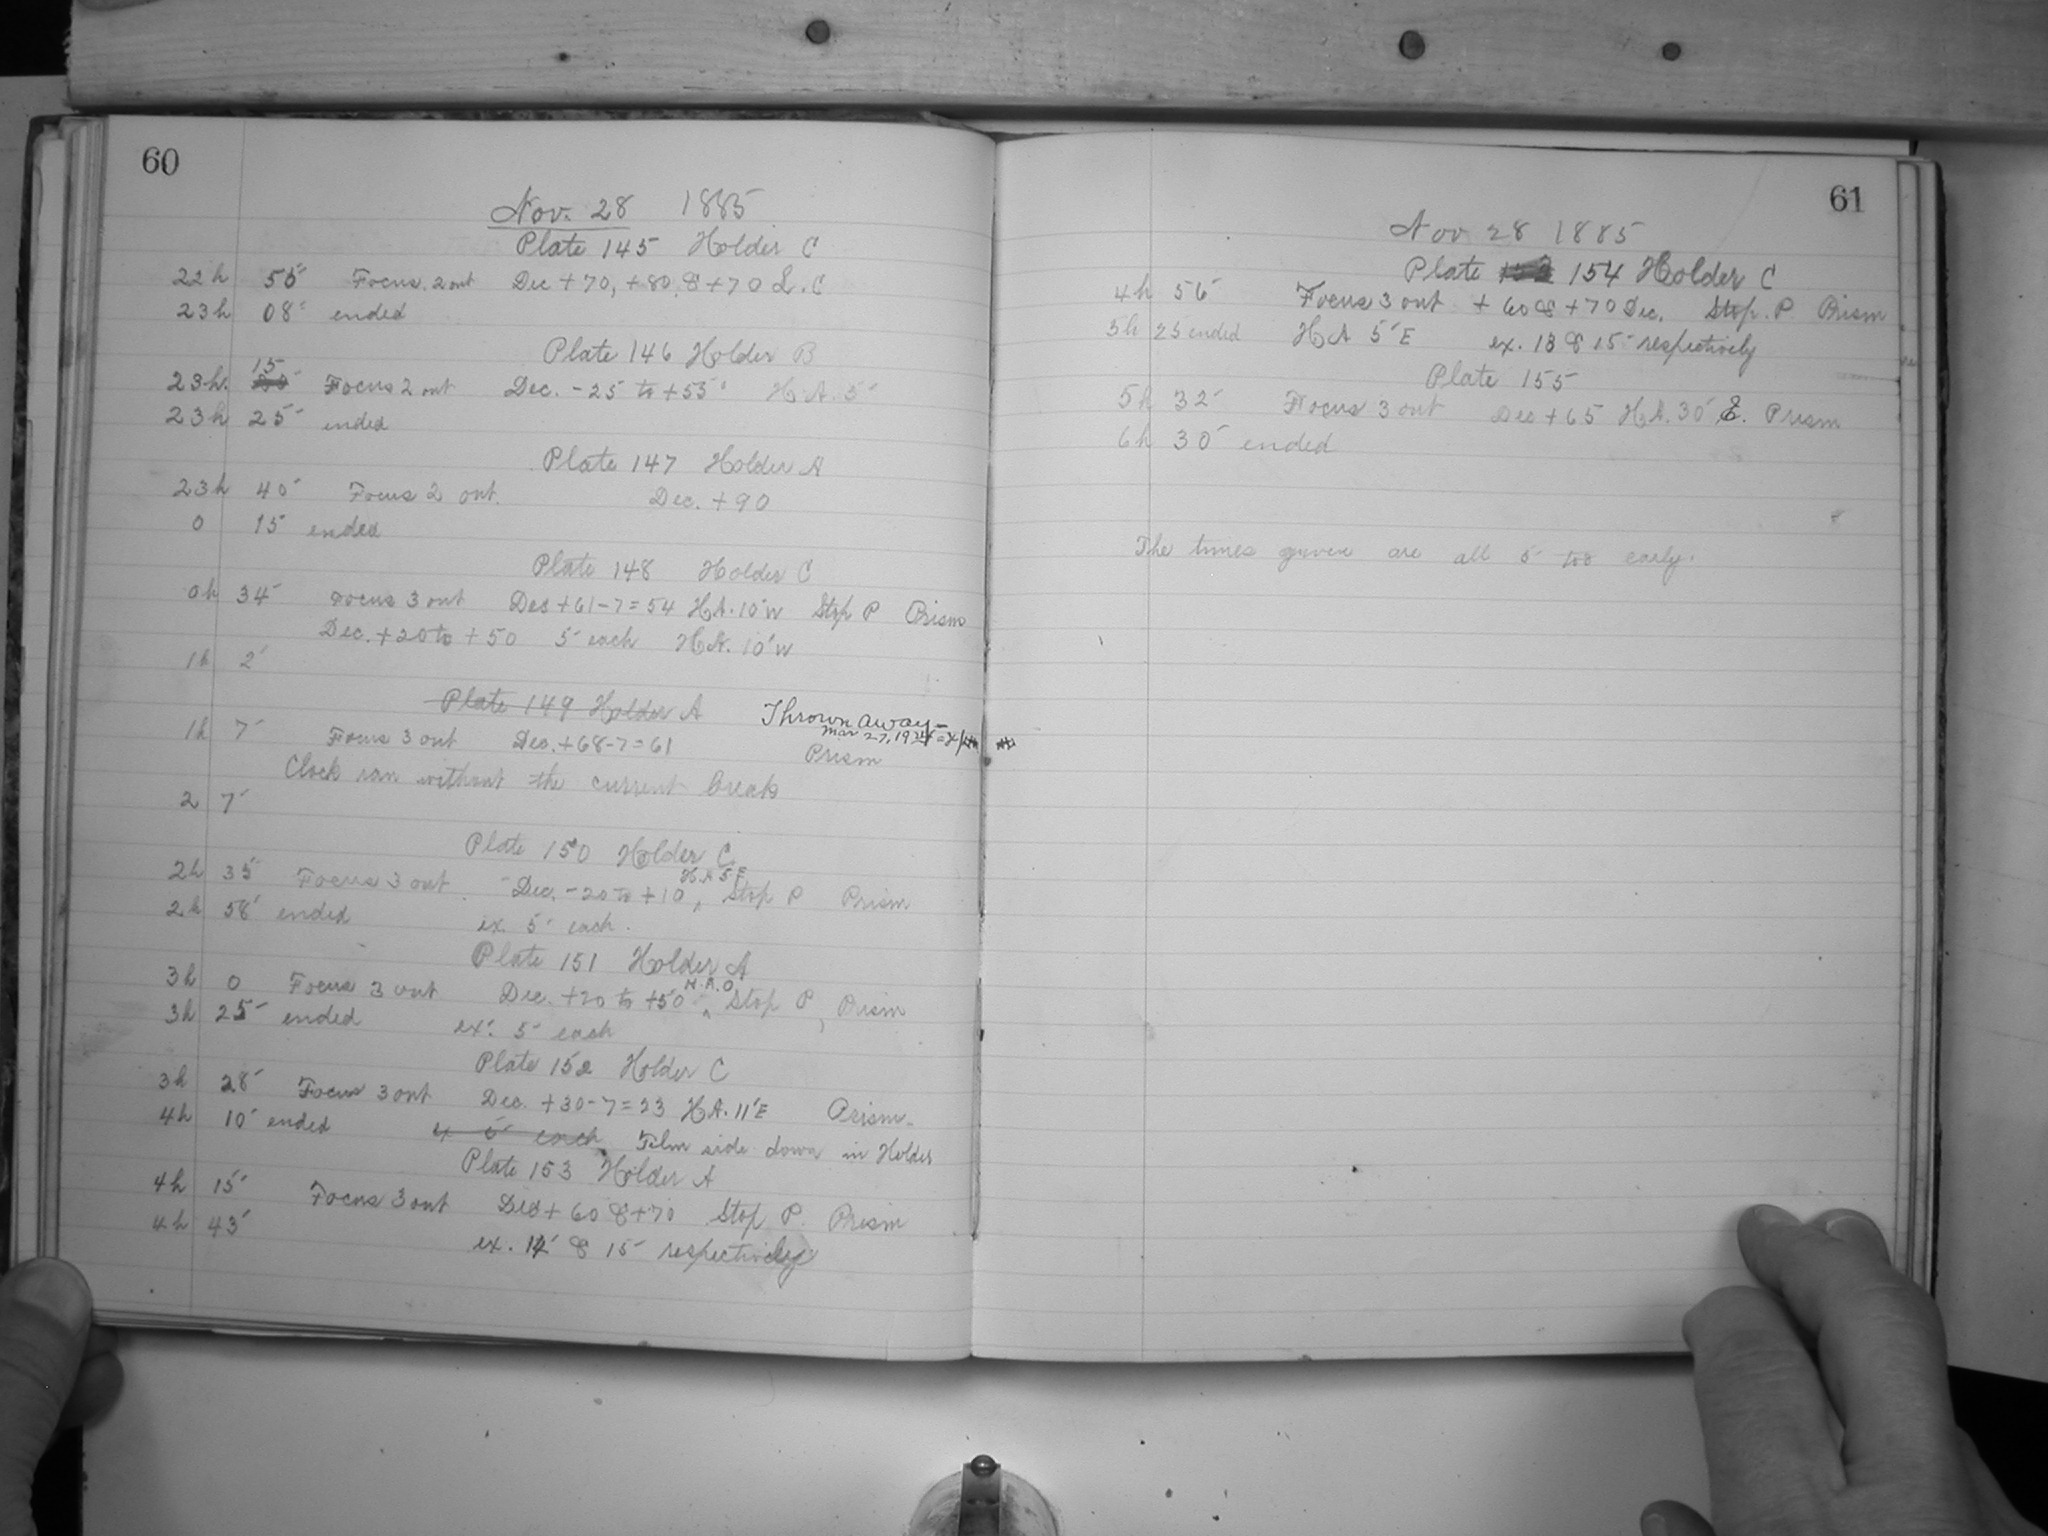 60
Nov. 28 1885
Plate 145 Holder C
22h 55' Focus 2 out Dec +70, +80, & +70 L.C
23h 08' ended
Plate 146 Holder B
15
23h. Focus 2 out Dec. -25 to +55° H.A. 5'
23h 25' ended
Plate 147 Holder A
23h 40' Focus 2 out. Dec. +90
0 15' ended
Plate 148 Holder C
0h 34' Focus 3 out Dec +61-7=54 H.A. 10'W Stop P Prism
Dec. +20 to +50 5' each H.A. 10'W
1h 2'
Plate 149 Holder A Thrown away-
Mar 27, 19
1h 7' Focus 3 out Dec. +68-7=61 Prism
Clock ran without the current break
2 7'
Plate 150 Holder C
H.A 5'E
2h 35' Focus 3 out Dec. -20 to +10, Stop P Prism
2h 58' ended ex. 5' each.
Plate 151 Holder A
H.A.0
3h 0 Focus 3 out Dec. +20 to +50 Stop P, Prism
3h 25' ended ex. 5' each
Plate 152 Holder C
3h 28' Focus 3 out Dec. +30-7=23 H.A. 11'E Prism
4h 10' ended ex 5' each Film side down in Holder
Plate 153 Holder A
4h 15' Focus 3 out Dec + 60 & +70 Stop P. Prism
4h 43' ex. 12' & 15' respectively
61
Nov 28 1885
Plate 154 Holder C
4h 56' Focus 3 out + 60 & +70 Dec. Stop. P Prism
5h 25 ended H.A 5'E ex. 13 & 15' respectively
Plate 155
5h 32' Focus 3 out Dec +65 H.A. 30' E. Prism
6h 30' ended
The times given are all 5' too early.